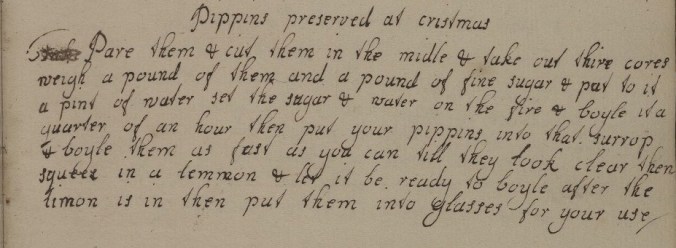 Pippins preserved at cristmas
Pare them & cut them in the midle & take out thire cores
weigh a pound of them and a pound of fine sugar & put to it
a pint of water set the sugar & water on the fire & boyle it a
quarter of an hour then put your pippins into that surrop
& boyle them as fast as you can till they look clear then
squees in a lemmon & let it be ready to boyle after the
limon is in then put them into Glasses for your use